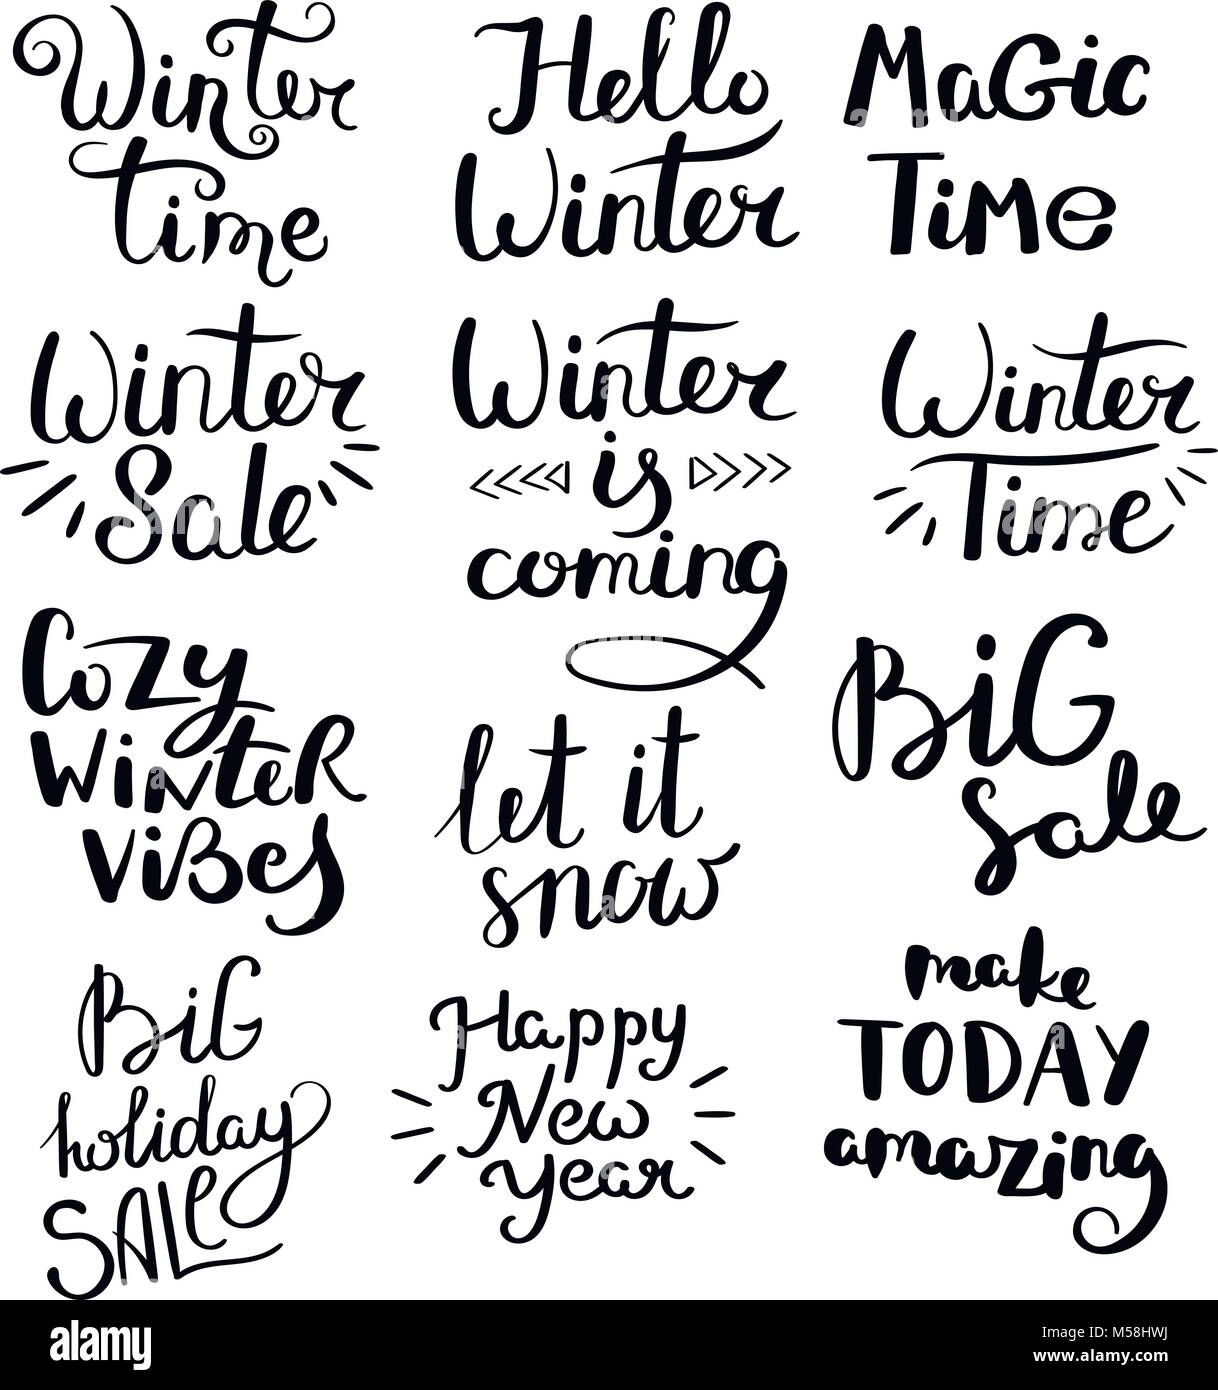 Winter
time
Hello
Winter
Magic
Time
Winter
Sale
Winter
is
coming
Winter
Time
Cozy
Winter
Vibes
let it
snow
Big
Sale
Big
holiday
SALe
Happy
New
year
make
TODAY
amazing
alamy
Image ID: M58HWJ
www.alamy.com